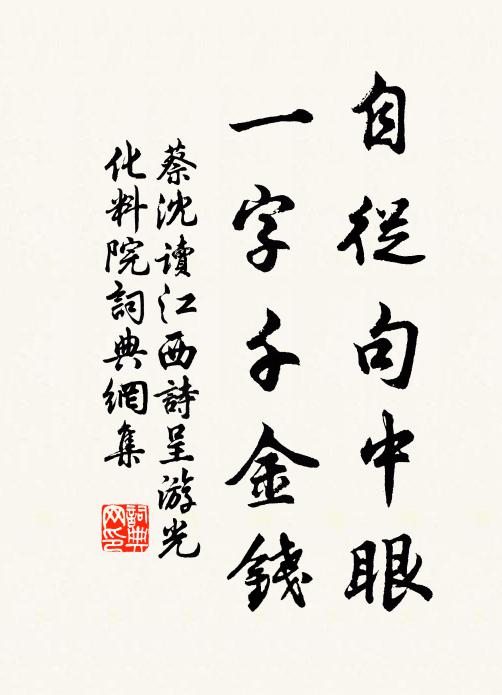 自從句中眼
一字千金錢
蔡沈讀江西詩呈游光
化料院詞典網集
詞典網印